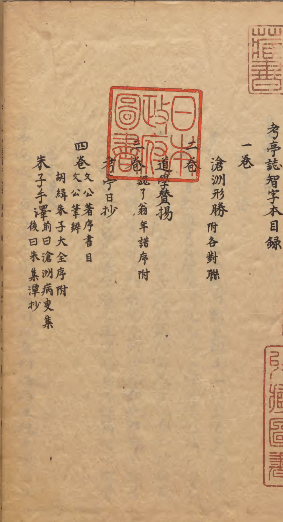 考亭誌智字本目錄
一卷
滄洲形勝 附各對聯
二卷
道學贊揚
三卷 了翁年譜序附
考亭日抄
四卷 文公著序書目
文公筆辨
胡緝朱子大全序附
朱子手澤 前曰滄洲病叟集
後曰朱集潭抄
日本政府圖書
藏書
藏圖書